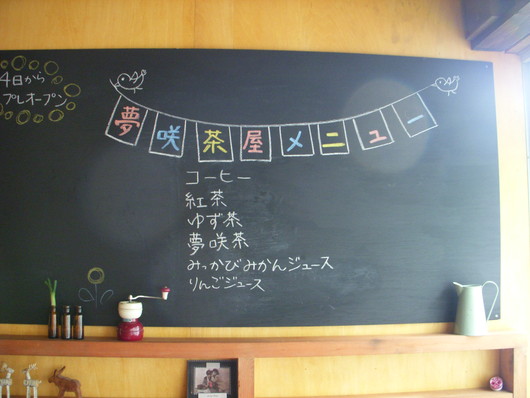 4日から
プレオープン
夢咲茶屋メニュー
コーヒー
紅茶
ゆず茶
夢咲茶
みっかびみかんジュース
りんごジュース